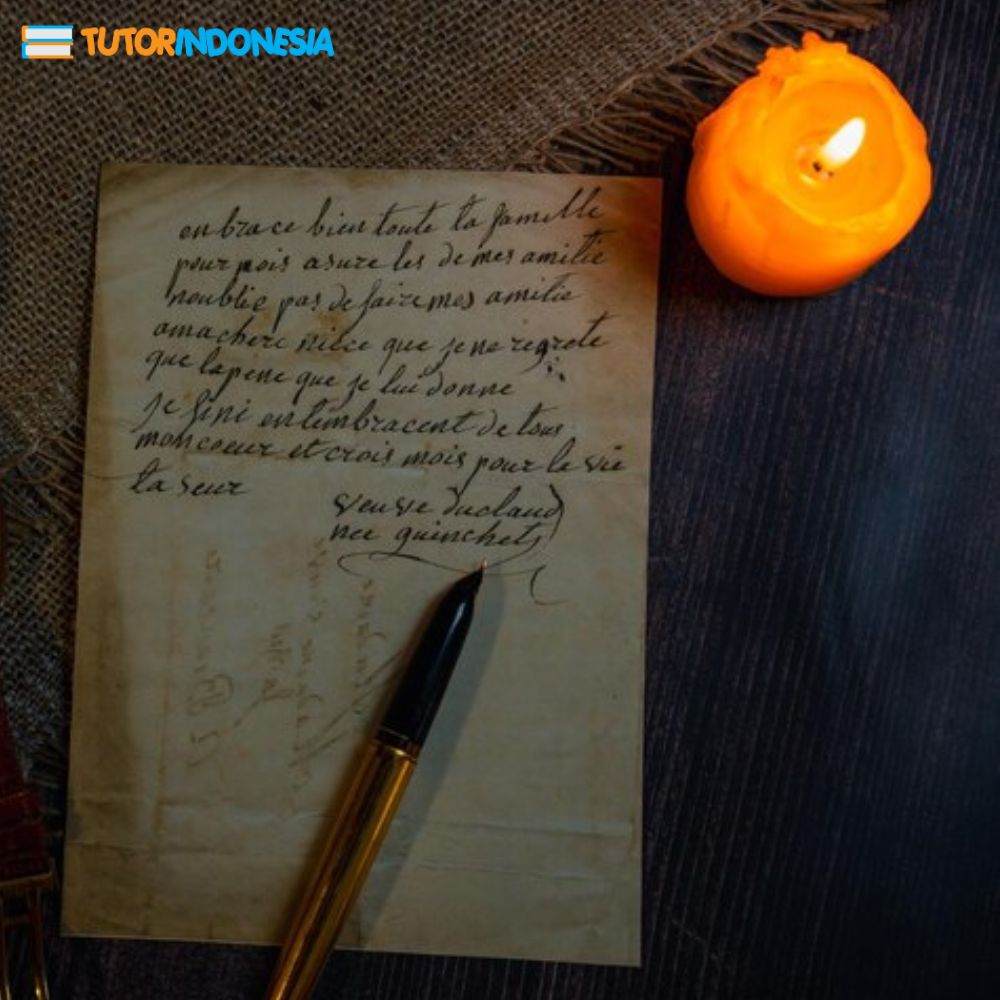 TUTORINDONESIA
enbrace bien toute ta famille
pour mois asure les de mes amitie
noublie pas de faire mes amitie
amachere niece que je ne regrete
que lapene que je lui donne
je fini entembracent de tous
moncoeur et crois mois pour la vie
ta seur
veuve duclaud
nee guinchets